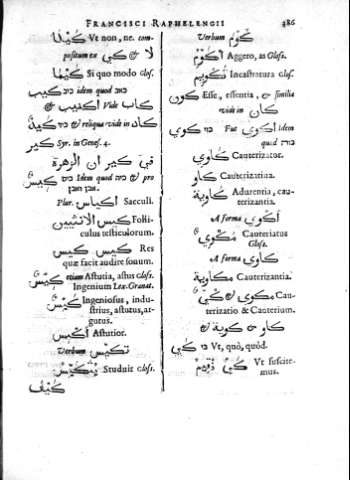 FRANCISCI RAPHELENGII 386
كَيْلَا Vt non, ne. com-
positum ex كي & لا
كَيْفَا Si quo modo Glos.
كيب idem quod כיב
Vide كاب اكتيب &
كيد כיד & reliqua vide in كاد
كير Syr. in Genes. 4.
في كير ان الزهرة
كيس כיס Idem quod כיס & pro
Plur. اكياس Sacculi.
كيس الانثيين Folli-
culus testiculorum.
كيس كيس Res
quæ facit audire sonum.
كيس etiam Astutia, astus Glos.
Ingenium Lex. Granat.
كيس Ingeniosus, indu-
strius, astutus, ar-
gutus.
اكيس Astutior.
Verbum تكيس
Studuit Glos.
كيف
Verbum كوم
اكوم Aggero, in Glos.
تكويم Incastratura Glos.
كون Esse, essentia, & similia
vide in كان
كوي כוי Fut اكوي idem
quod כוה
كاوي Cauterizator.
كاو Cauterizatiua.
كاوية Adurentia, cau-
terizantia.
A forma اكوي
مكوي Cauteriatus
Glos.
A forma كاوي
مكاوية Cauterizantia.
كي & مكوي Cau-
terizatio & Cauterium.
كاو & كوية &
كي כי Vt, quò, quòd.
Vt suscite-
mus.